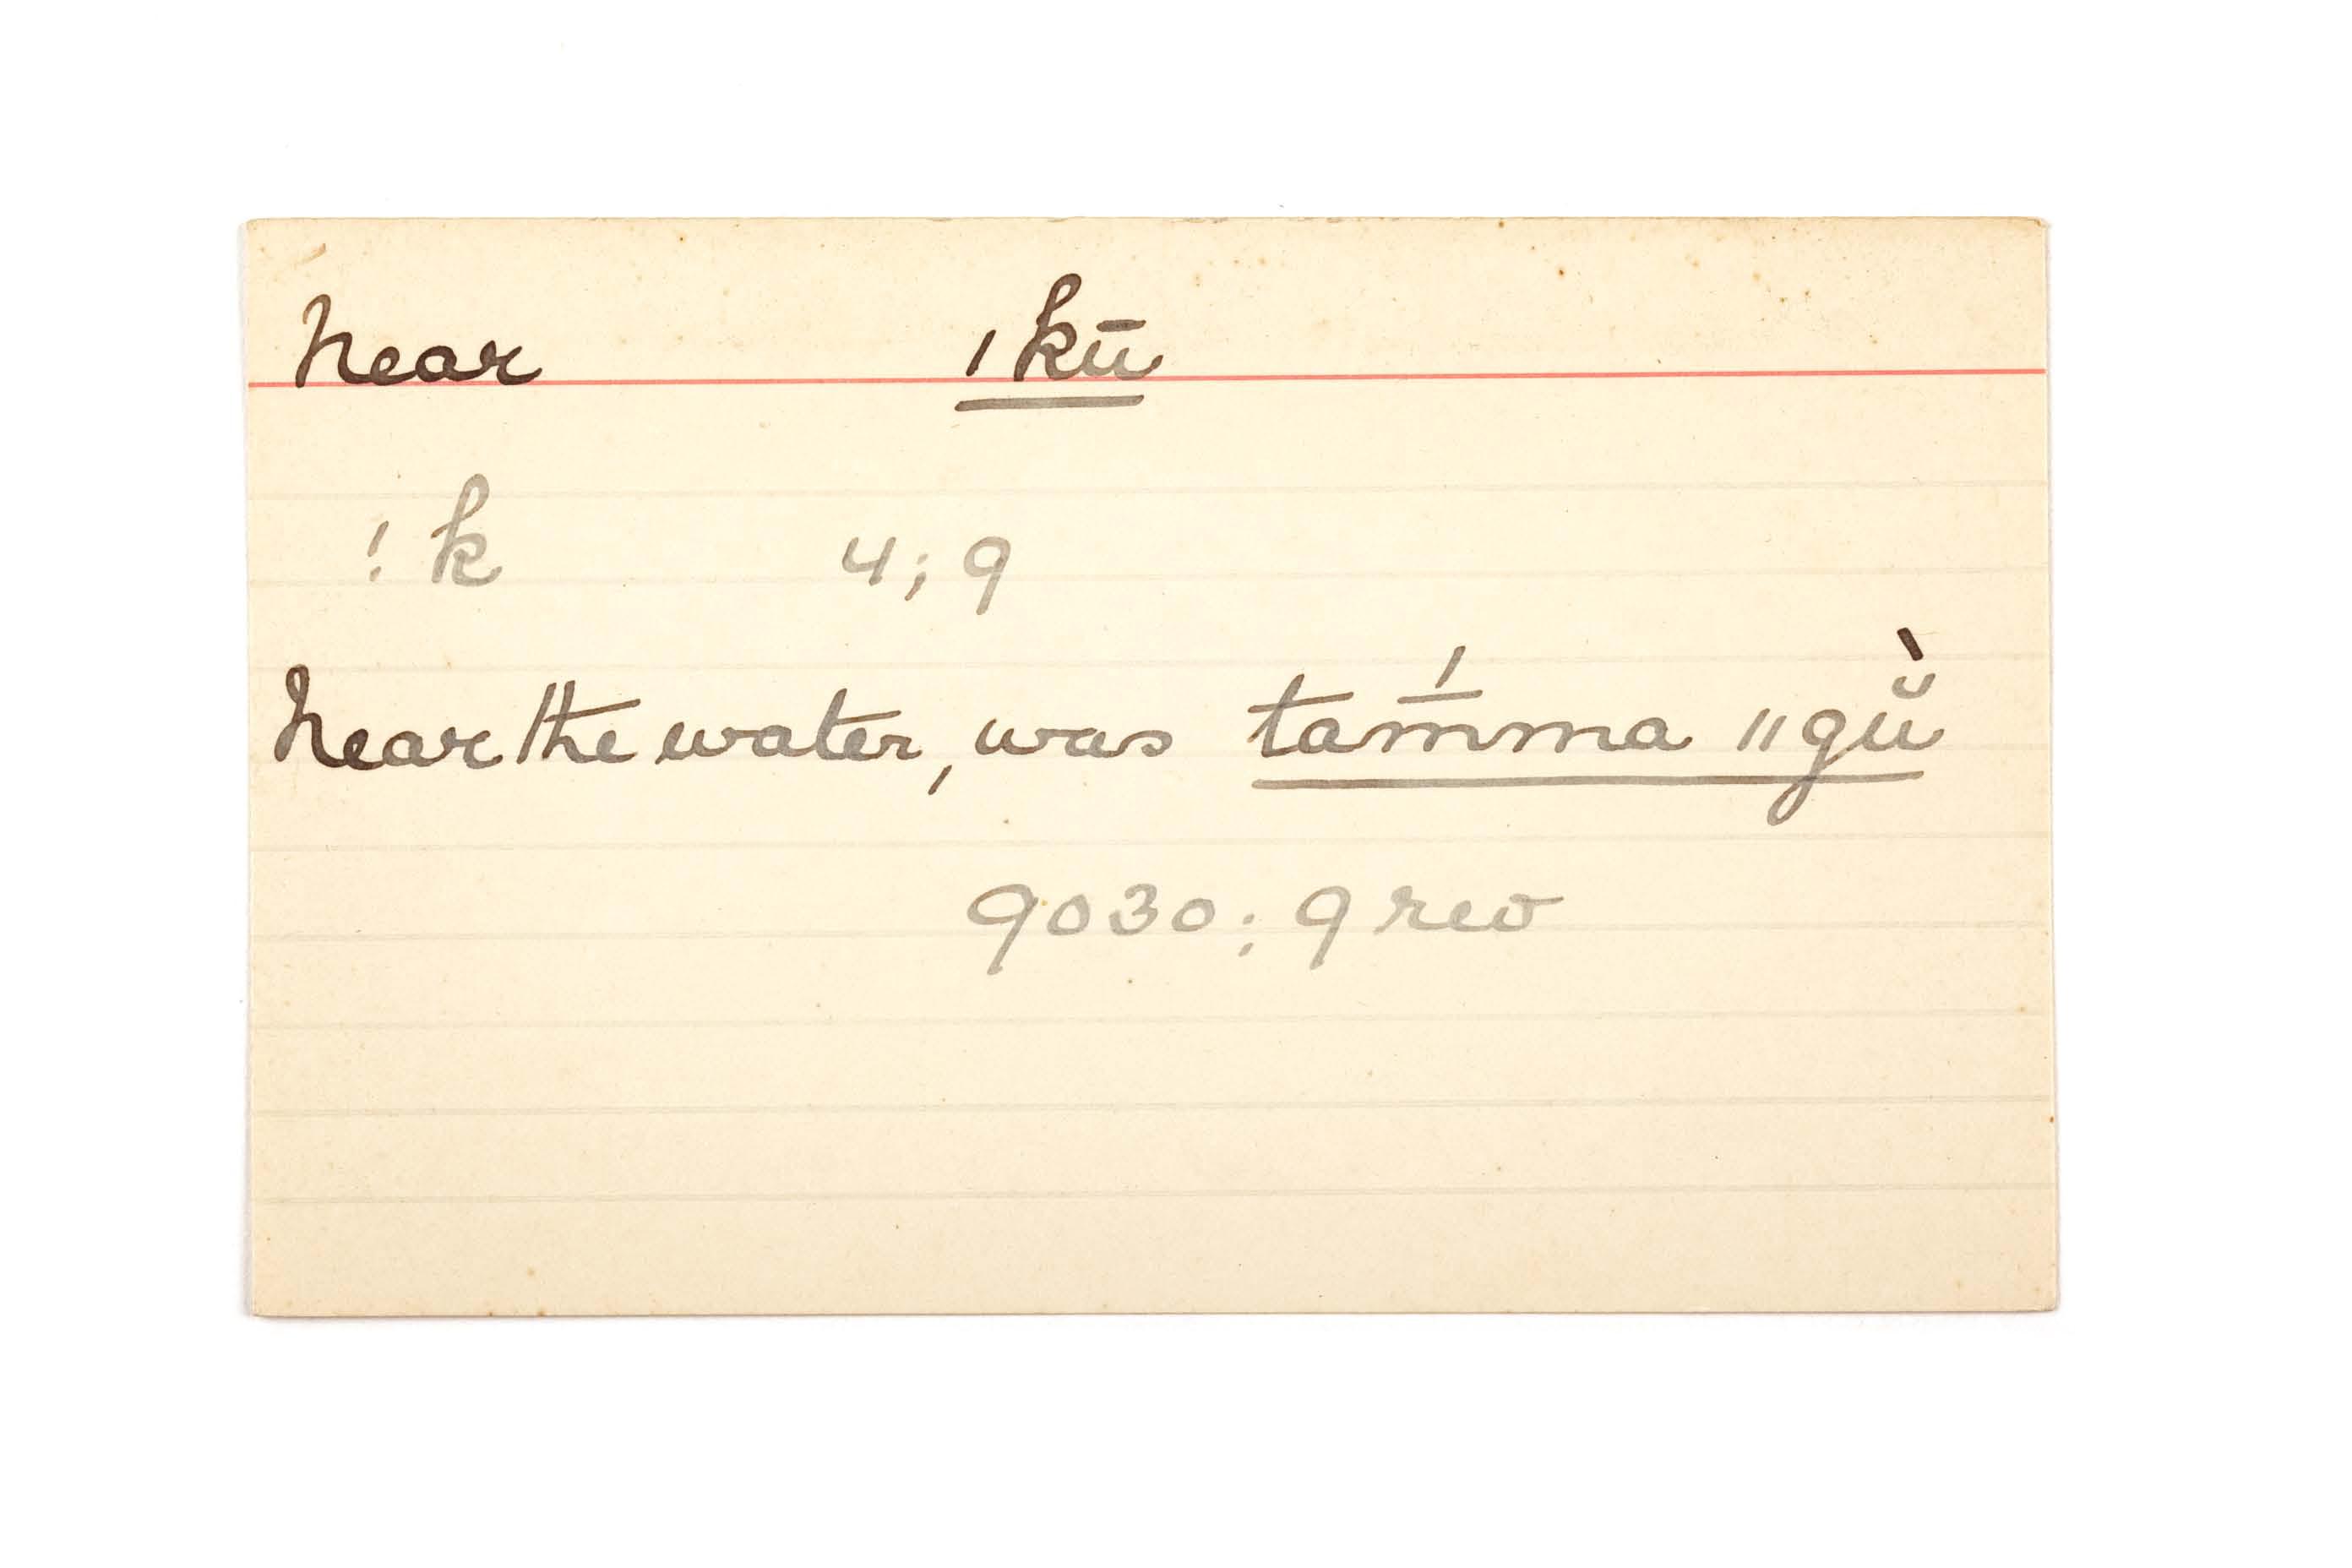 Near ǀkū
!k 4; 9
Near the water, was tam̄́ma ǁgŭ̀
9030; 9 rev